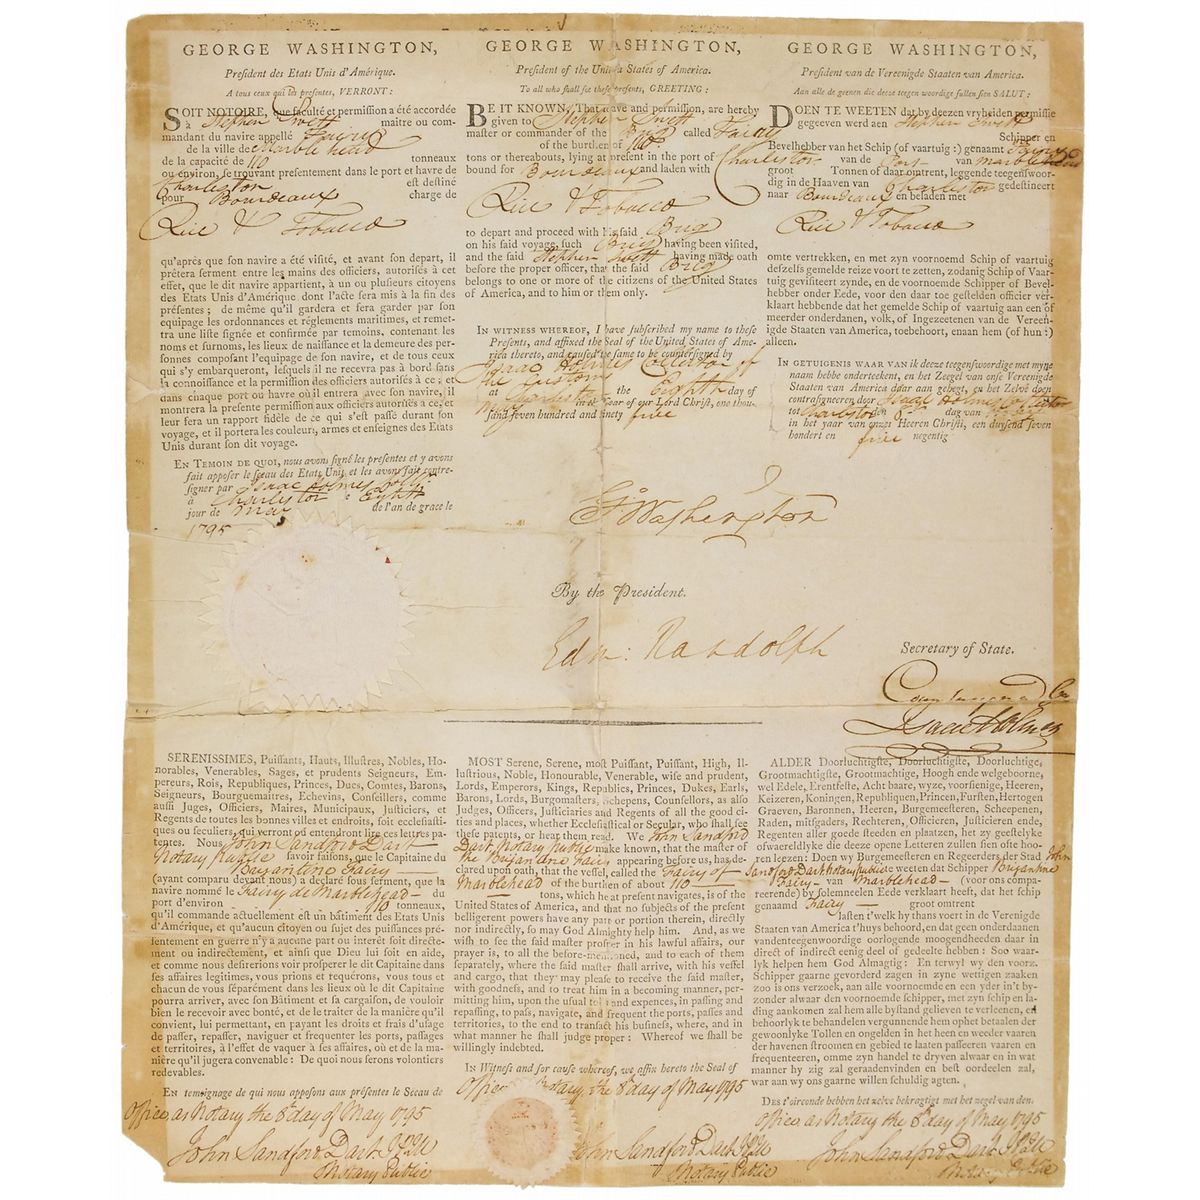 GEORGE WASHINGTON,
President des Etats Unis d'Amérique.
A tous ceux qui les présentes, VERRONT:
SOIT NOTOIRE, que faculté et permission a été accordée
à Stephen Swett maitre ou com-
mandant du navire appellé Fairy
de la ville de Marblehead
de la capacité de 110 tonneaux
ou environ, se trouvant presentement dans le port et havre de
Charleston est destiné
pour Bourdeaux charge de
Rice & Tobacco
qu'après que son navire a été visité, et avant son depart, il
prêtera serment entre les mains des officiers, autorisés à cet
effet, que le dit navire appartient, à un ou plusieurs citoyens
des Etats Unis d'Amérique dont l'acte sera mis à la fin des
présentes; de même qu'il gardera et fera garder par son
equipage les ordonnances et réglements maritimes, et remet-
tra une liste signée et confirmée par temoins, contenant les
noms et surnoms, les lieux de naissance et la demeure des per-
sonnes composant l'equipage de son navire, et de tous ceux
qui s'y embarqueront, lesquels il ne recevra pas à bord sans
la connoissance et la permission des officiers autorisés à ce; et
dans chaque port ou havre où il entrera avec son navire, il
montrera la présente permission aux officiers autorisés à ce, et
leur fera un rapport fidèle de ce qui s'est passé durant son
voyage, et il portera les couleurs, armes et enseignes des Etats
Unis durant son dit voyage.
EN TEMOIN DE QUOI, nous avons signé les presentes et y avons
fait apposer le sceau des Etats Unis, et les avons fait contre-
signer par Isaac Holmes Collr.
à Charleston le Eighth
jour de May de l'an de grace le
1795
GEORGE WASHINGTON,
President of the United States of America.
To all who shall see these presents, GREETING:
BE IT KNOWN, That leave and permission, are hereby
given to Stephen Swett
master or commander of the Brig called Fairy
of the burthen of 110
tons or thereabouts, lying at present in the port of Charleston
bound for Bourdeaux and laden with
Rice & Tobacco
to depart and proceed with his said Brig
on his said voyage, such Brig having been visited,
and the said Stephen Swett having made oath
before the proper officer, that the said Brig
belongs to one or more of the citizens of the United States
of America, and to him or them only.
IN WITNESS WHEREOF, I have subscribed my name to these
Presents, and affixed the Seal of the United States of Ame-
rica thereto, and caused the same to be countersigned by
Isaac Holmes Collector of
the Customs
at Charleston the Eighth day of
May in the Year of our Lord Christ, one thou-
sand seven hundred and ninety five
GEORGE WASHINGTON,
President van de Vereenigde Staaten van America.
Aan alle de geenen die deeze teegen woordige sullen sien SALUT:
DOEN TE WEETEN dat by deezen vryheid en permissie
gegeeven werd aen Stephen Swett
Schipper en
Bevelhebber van het Schip (of vaartuig:) genaamt Fairy
van de Port van Marblehead
groot Tonnen of daar omtrent, leggende teegenswoor-
dig in de Haaven van Charleston gedestineert
naar Bourdeaux en beladen met
Rice & Tobacco
omte vertrekken, en met zyn voornoemd Schip of vaartuig
deszelfs gemelde reize voort te zetten, zodanig Schip of Vaar-
tuig gevisiteert zynde, en de voornoemde Schipper of Bevel-
hebber onder Eede, voor den daar toe gestelden officier ver-
klaart hebbende dat het gemelde Schip of vaartuig aan een of
meerder onderdanen, volk, of Ingezetenen van de Vereen-
igde Staaten van America, toebehoort, enaan hem (of hun:)
alleen.
IN GETUIGENIS WAAR VAN ik deeze teegenswoordige met myne
naam hebbe onderteekent, en het Zeegel van onse Vereenigde
Staaten van America daar aan gehegt, en het Zelve doen
contrasigneeren door Isaac Holmes Collector
tot Charleston den 8th dag van May
in het yaar van onzes Heeren Christi, een duysend seven
hondert en five negentig
Go Washington
By the President.
Edm: Randolph
Secretary of State.
Countersigned
Isaac Holmes
SERENISSIMES, Puissants, Hauts, Illustres, Nobles, Ho-
norables, Venerables, Sages, et prudents Seigneurs, Em-
pereurs, Rois, Republiques, Princes, Ducs, Comtes, Barons,
Seigneurs, Bourguemaitres, Echevins, Conseillers, comme
aussi Juges, Officiers, Maires, Municipaux, Justiciers, et
Regents de toutes les bonnes villes et endroits, soit ecclesiasti-
ques ou seculiers, qui verront ou entendront lire ces lettres pa-
tentes. Nous John Sandford Dart
Notary Public savoir faisons, que le Capitaine du
Brigantine Fairy
(ayant comparu devant nous) a déclaré sous serment, que la
navire nommé le Fairy de Marblehead du
port d'environ 110 tonneaux,
qu'il commande actuellement est un bâtiment des Etats Unis
d'Amérique, et qu'aucun citoyen ou sujet des puissances pré-
sentement en guerre n'y a aucune part ou interêt soit directe-
ment ou indirectement, et ainsi que Dieu lui soit en aide,
et comme nous desirerions voir prosperer le dit Capitaine dans
ses affaires legitimes, vous prions et requerons, vous tous et
chacun de vous séparément dans les lieux où le dit Capitaine
pourra arriver, avec son Bâtiment et sa cargaison, de vouloir
bien le recevoir avec bonté, et de le traiter de la manière qu'il
convient, lui permettant, en payant les droits et frais d'usage
de passer, repasser, naviguer et frequenter les ports, passages
et territoires, à l'effet de vaquer à ses affaires, où et de la ma-
nière qu'il jugera convenable: De quoi nous serons volontiers
redevables.
En temoignage de qui nous apposons aux présentes le Sceau de
Office as Notary the 8th day of May 1795
John Sandford Dart
Notary Public
MOST Serene, Serene, most Puissant, Puissant, High, Il-
lustrious, Noble, Honourable, Venerable, wise and prudent,
Lords, Emperors, Kings, Republics, Princes, Dukes, Earls,
Barons, Lords, Burgomasters, Schepens, Counsellors, as also
Judges, Officers, Justiciaries and Regents of all the good ci-
ties and places, whether Ecclesiastical or Secular, who shall see
these patents, or hear them read. We John Sandford
Dart Notary Public make known, that the master of
the Brigantine Fairy appearing before us, has de-
clared upon oath, that the vessel, called the Fairy of
Marblehead of the burthen of about 110
tons, which he at present navigates, is of the
United States of America, and that no subjects of the present
belligerent powers have any part or portion therein, directly
nor indirectly, so may God Almighty help him. And, as we
wish to see the said master prosper in his lawful affairs, our
prayer is, to all the before-mentioned, and to each of them
separately, where the said master shall arrive, with his vessel
and cargo, that they may please to receive the said master,
with goodness, and to treat him in a becoming manner, per-
mitting him, upon the usual tolls and expences, in passing and
repassing, to pass, navigate, and frequent the ports, passes and
territories, to the end to transact his business, where, and in
what manner he shall judge proper: Whereof we shall be
willingly indebted.
In Witness and for cause whereof, we affix hereto the Seal of
Office as Notary, the 8th day of May 1795
John Sandford Dart
Notary Public
ALDER Doorluchtigste, Doorluchtige, Doorluchtige,
Grootmachtigste, Grootmachtige, Hoogh ende welgeboorne,
wel Edele, Erentfeste, Acht baare, wyze, voorsienige, Heeren,
Keizeren, Koningen, Republiquen, Princen, Fursten, Hertogen
Graeven, Baronnen, Heeren, Burgemeesteren, Scheepenen,
Raden, mitsgaders, Rechteren, Officieren, Justicieren ende,
Regenten aller goede steeden en plaatzen, het zy geestelyke
ofwaereldlyke die deeze opene Letteren zullen sien ofte hoo-
ren leezen: Doen wy Burgemeesteren en Regeerders der Stad John
Sandford Dart Notary Public te weeten dat de Schipper Brigantine
Fairy van Marblehead (voor ons compa-
reerende) by solemneelen Eede verklaart heeft, dat het schip
genaamd Fairy groot omtrent
lasten t'welk hy thans voert in de Verenigde
Staaten van America t'huys behoord, en dat geen onderdaanen
vandenteegenwoordige oorlogende moogendheeden daar in
direct of indirect eenig deel of gedeelte hebben: Soo waar-
lyk helpen hem God Almagtig: En terwyl wy den voorz.
Schipper gaarne gevorderd zagen in zyne wettigen zaaken
zoo is ons verzoek, aan alle voornoemde en een yder in't by-
zonder alwaar den voornoemde schipper, met zyn schip en la-
ding aankomen zal hem alle bystand gelieven te verleenen, en
behoorlyk te behandelen vergunnende hem ophet betaalen der
gewoonlyke Tollen en ongelden in het heen en weeder vaaren
der havenen stroomen en gebied te laaten passeeren vaaren en
frequenteeren, omme zyn handel te dryven alwaar en in wat
manner hy zig zal geraadenvinden en best oordeelen zal,
war aan wy ons gaarne willen schuldig agten.
Des t'oirconde hebben het zelve bekragtigt met het zegel van den.
Office as Notary the 8th day of May 1795
John Sandford Dart
Notary Public